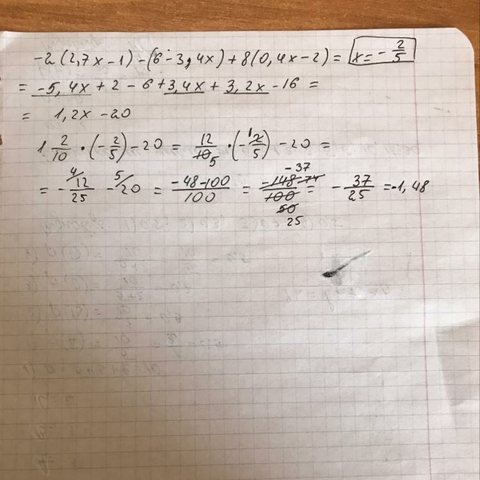 -2(2,7x-1)-(6-3,4x)+8(0,4x-2)= x=-2/5
= -5,4x+2-6+3,4x+3,2x-16=
= 1,2x-20
1 2/10 · (-2/5) -20 = 12/10 5 · (-1 2/5) -20 =
= - 4/ 12/25 - 5/ 20 = -48-100/100 = -148 -74 -37/100 50 25 = - 37/25 = -1,48